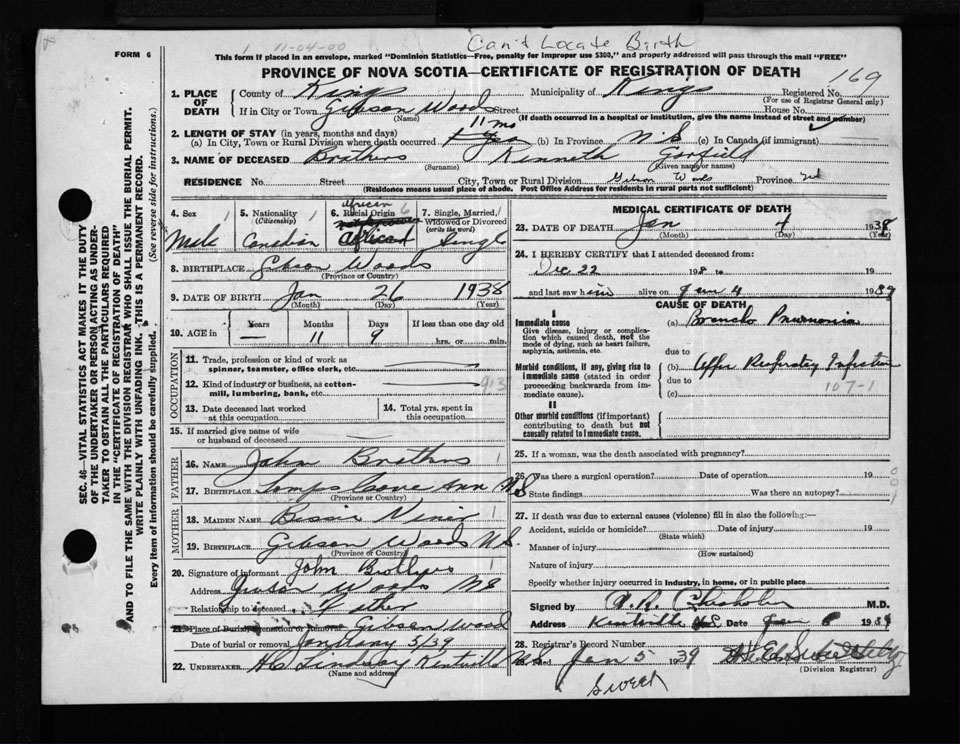 Can't Locate Birth
1 11-04-00
FORM 6
This form if placed in an envelope, marked "Dominion Statistics—Free, penalty for improper use $300," and properly addressed will pass through the mail "FREE"
PROVINCE OF NOVA SCOTIA—CERTIFICATE OF REGISTRATION OF DEATH
169
1. PLACE OF DEATH County of Kings Municipality of Kings Registered No.
(For use of Registrar General only)
If in City or Town Gibson Woods Street House No.
(Name) (If death occurred in a hospital or institution, give the name instead of street and number)
2. LENGTH OF STAY (in years, months and days) 11 mo
(a) In City, Town or Rural Division where death occurred (b) In Province N.S. (c) In Canada (if immigrant)
3. NAME OF DECEASED Brothers Kenneth Garfield
(Surname) (Given name or names)
RESIDENCE No. Street City, Town or Rural Division Gibson Woods Province
(Residence means usual place of abode. Post Office Address for residents in rural parts not sufficient)
4. Sex 1 Male
5. Nationality 1 (Citizenship) Canadian
6. Racial Origin 6 African
7. Single, Married, Widowed or Divorced (write the word) Single
8. BIRTHPLACE Gibson Woods
(Province or Country)
9. DATE OF BIRTH Jan 26 1938
(Month) (Day) (Year)
10. AGE in Years — Months 11 Days 9 If less than one day old hrs. or min.
OCCUPATION
11. Trade, profession or kind of work as spinner, teamster, office clerk, etc.
12. Kind of industry or business, as cotton-mill, lumbering, bank, etc. 913
13. Date deceased last worked at this occupation
14. Total yrs. spent in this occupation.
15. If married give name of wife or husband of deceased
FATHER
16. Name John Brothers 1
17. Birthplace N.S
(Province or Country)
MOTHER
18. Maiden Name Bessie 1
19. Birthplace Gibson Woods N.S.
(Province or Country)
20. Signature of informant John Brothers
Address Gibson Woods N S
Relationship to deceased Father
21. Place of Burial, Cremation or Removal Gibson Wood
Date of burial or removal January 5/39
22. UNDERTAKER H C Lindsay Kentville N.S.
(Name and address)
MEDICAL CERTIFICATE OF DEATH
23. DATE OF DEATH Jan 4 1938
(Month) (Day) (Year)
24. I HEREBY CERTIFY that I attended deceased from:
Dec 22 198 to 19
and last saw him alive on Jan 4 1939
CAUSE OF DEATH
I
Immediate cause
Give disease, injury or complication which caused death, not the mode of dying, such as heart failure, asphyxia, asthenia, etc.
(a) Broncho Pneumonia
due to
Morbid conditions, if any, giving rise to immediate cause (stated in order of proceeding backwards from immediate cause).
(b) Upper Respiratory Infection
due to 107-1
(c)
II
Other morbid conditions (if important) contributing to death but not causally related to immediate cause.
25. If a woman, was the death associated with pregnancy?
26. Was there a surgical operation? Date of operation 19
State findings Was there an autopsy?
27. If death was due to external causes (violence) fill in also the following:
Accident, suicide or homicide? Date of injury 19
(State which)
Manner of injury
(How sustained)
Nature of injury
Specify whether injury occurred in industry, in home, or in public place
Signed by A. R. Chisholm M.D.
Address Kentville N.S. Date Jan 6 1939
28. Registrar's Record Number
Jan 5 1939
(Division Registrar)
SEC. 46—VITAL STATISTICS ACT MAKES IT THE DUTY
OF THE UNDERTAKER OR PERSON ACTING AS UNDER-
TAKER TO OBTAIN ALL THE PARTICULARS REQUIRED
IN THE "CERTIFICATE OF REGISTRATION OF DEATH"
AND TO FILE THE SAME WITH THE DIVISION REGISTRAR WHO SHALL ISSUE THE BURIAL PERMIT.
WRITE PLAINLY WITH UNFADING INK. THIS IS A PERMANENT RECORD.
Every item of information should be carefully supplied. (See reverse side for instructions.)